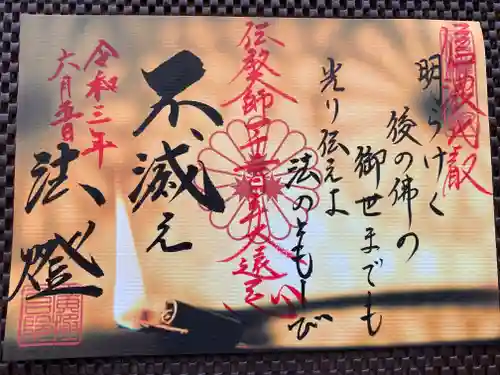 信濃比叡
明らけく
後の佛の
御世までも
光り伝えよ
法のともしび
伝教大師一千二百年大遠忌
不滅之
法燈
令和三年
六月五日